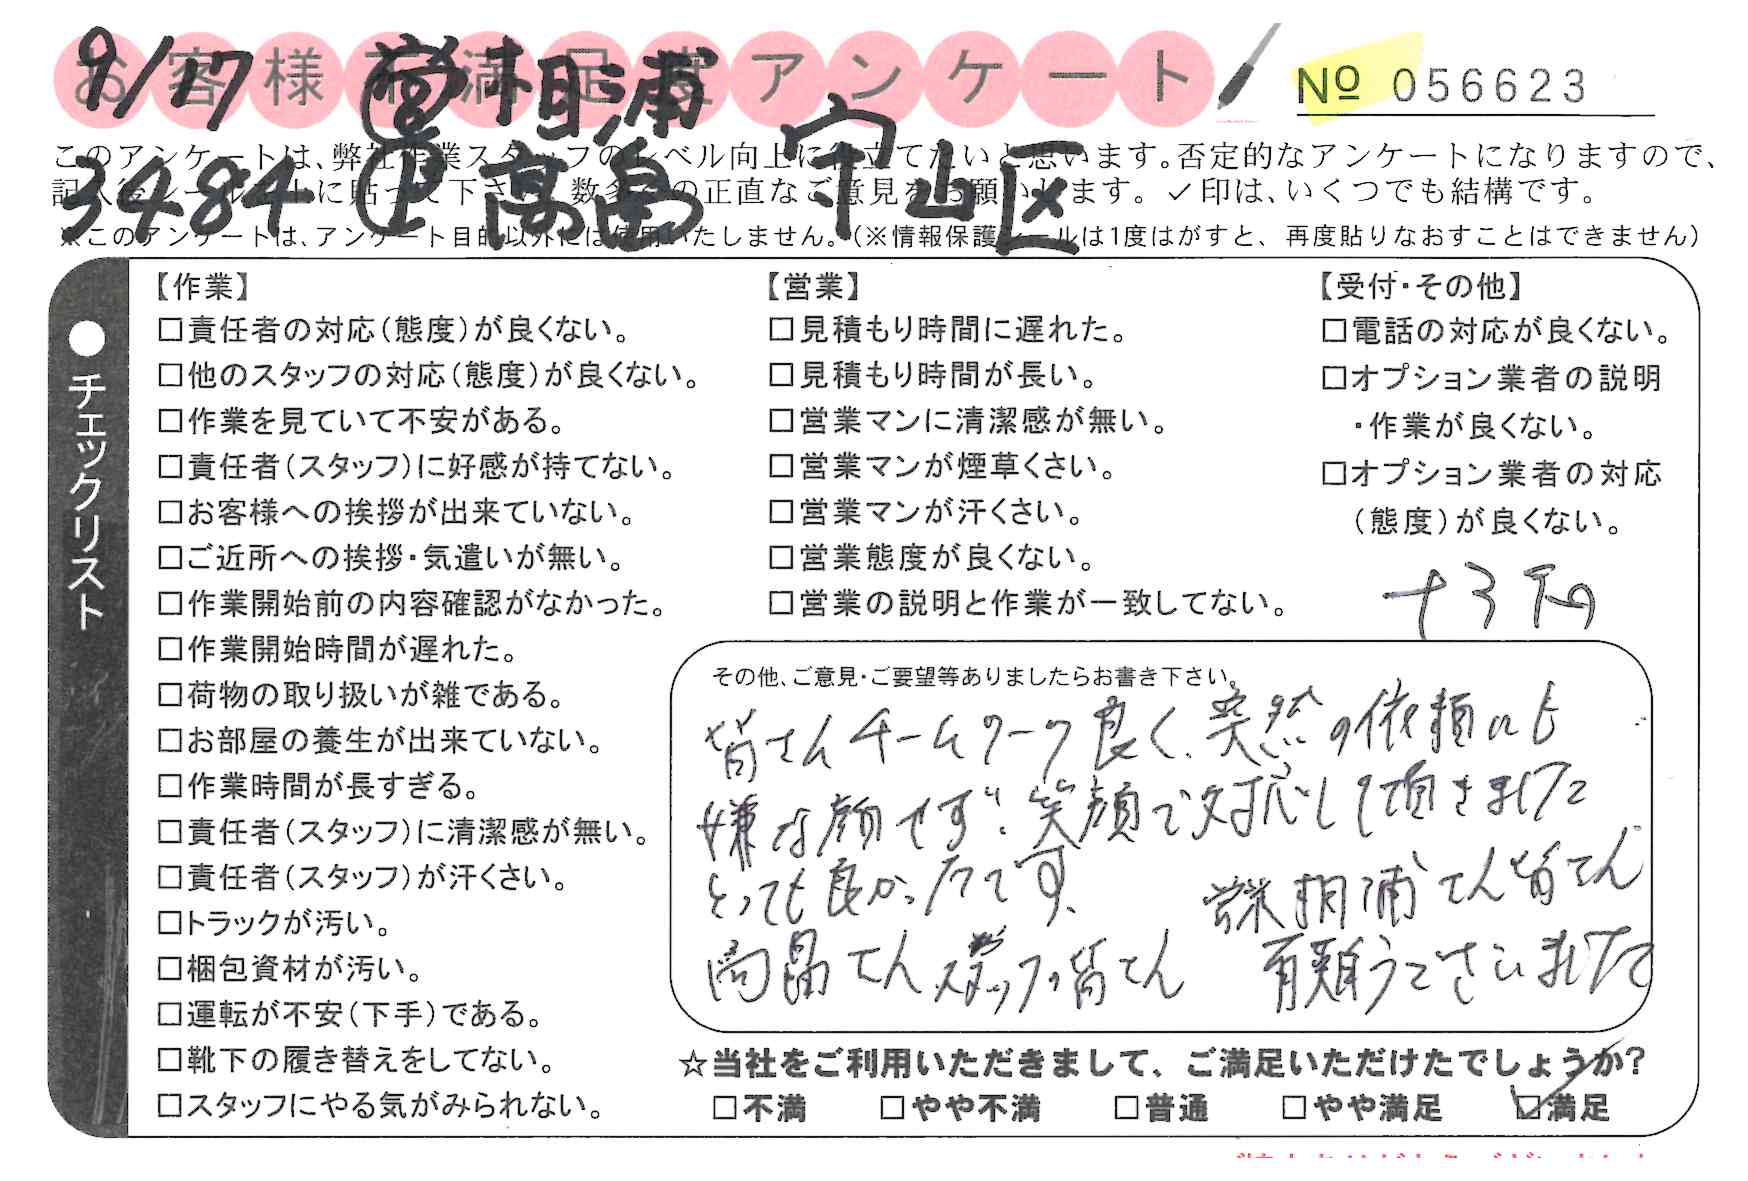 お客様不満足度アンケート
9/17 営 相浦
No 056623
3484 上 高畠 守山区
このアンケートは、弊社作業スタッフのレベル向上に役立てたいと思います。否定的なアンケートになりますので、
記入後シールを上に貼って下さい。数多くの正直なご意見をお願いします。✓印は、いくつでも結構です。
※このアンケートは、アンケート目的以外には使用いたしません。(※情報保護シールは1度はがすと、再度貼りなおすことはできません)
●チェックリスト
【作業】
□責任者の対応(態度)が良くない。
□他のスタッフの対応(態度)が良くない。
□作業を見ていて不安がある。
□責任者(スタッフ)に好感が持てない。
□お客様への挨拶が出来ていない。
□ご近所への挨拶・気遣いが無い。
□作業開始前の内容確認がなかった。
□作業開始時間が遅れた。
□荷物の取り扱いが雑である。
□お部屋の養生が出来ていない。
□作業時間が長すぎる。
□責任者(スタッフ)に清潔感が無い。
□責任者(スタッフ)が汗くさい。
□トラックが汚い。
□梱包資材が汚い。
□運転が不安(下手)である。
□靴下の履き替えをしてない。
□スタッフにやる気がみられない。
【営業】
□見積もり時間に遅れた。
□見積もり時間が長い。
□営業マンに清潔感が無い。
□営業マンが煙草くさい。
□営業マンが汗くさい。
□営業態度が良くない。
□営業の説明と作業が一致してない。
【受付・その他】
□電話の対応が良くない。
□オプション業者の説明
・作業が良くない。
□オプション業者の対応
(態度)が良くない。
その他、ご意見・ご要望等ありましたらお書き下さい。
皆さんチームワーク良く、突然の依頼にも
嫌な顔せず、笑顔で対応して頂きました
とっても良かったです、
営業相浦さん皆さん
高畠さん スタッフの皆さん 有難うございました
☆当社をご利用いただきまして、ご満足いただけたでしょうか?
□不満 □やや不満 □普通 □やや満足 ☑満足